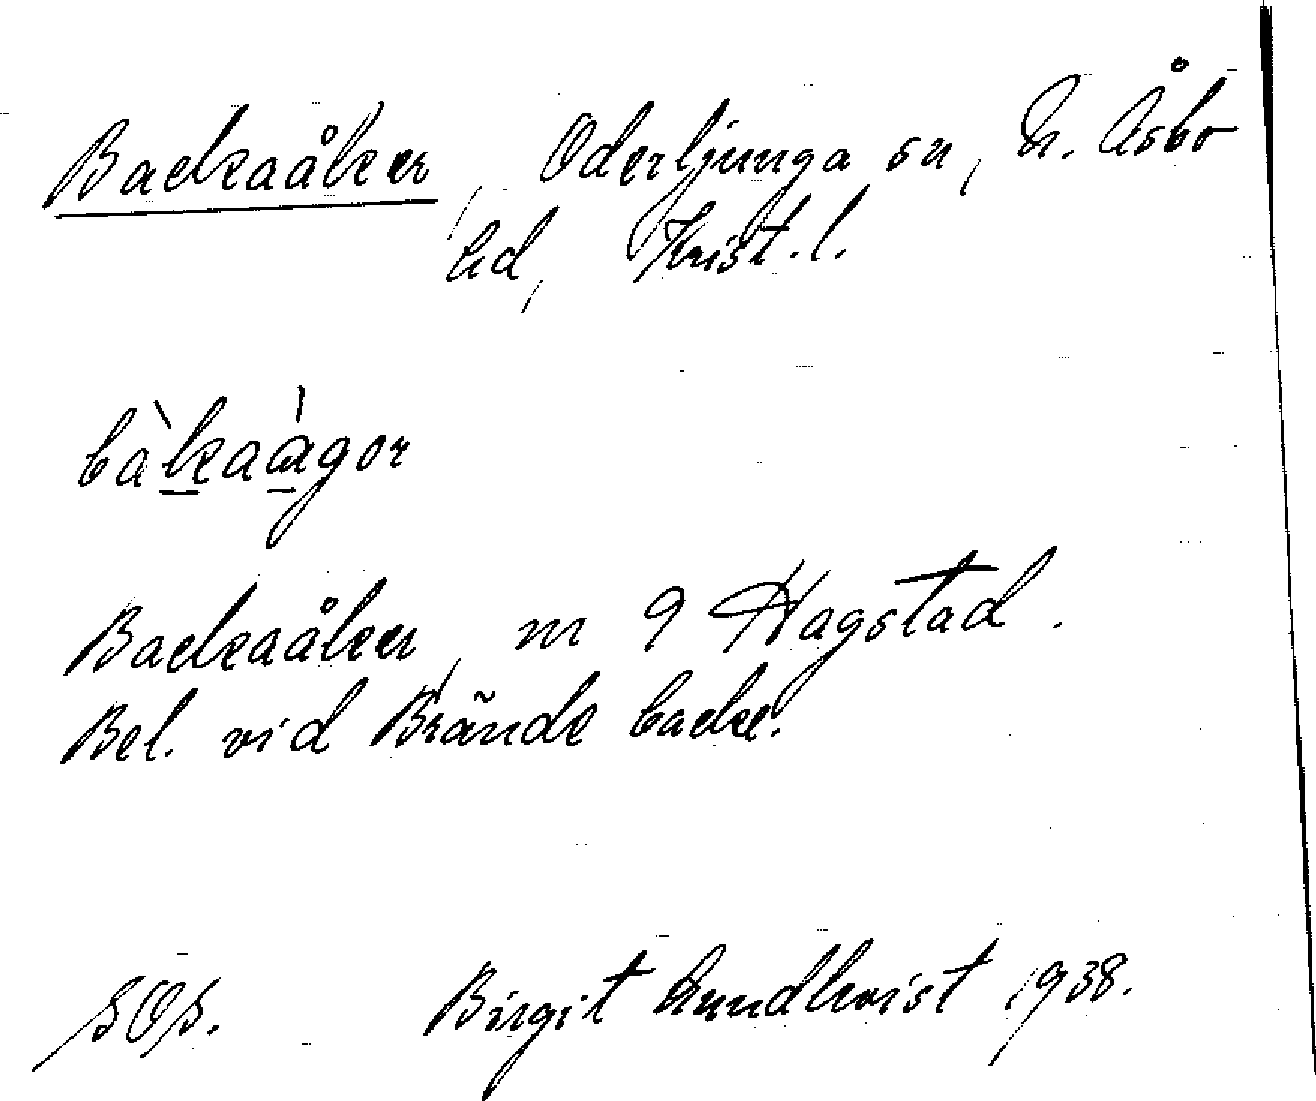 Backaåker, Oderljunga sn, N. Åsbo
hd, Krist. l.
bàkaàgor
Backaåker, nr 9 Hagstad.
Bel. vid Brände backe.
SOS. Birgit Lundkvist 1938.